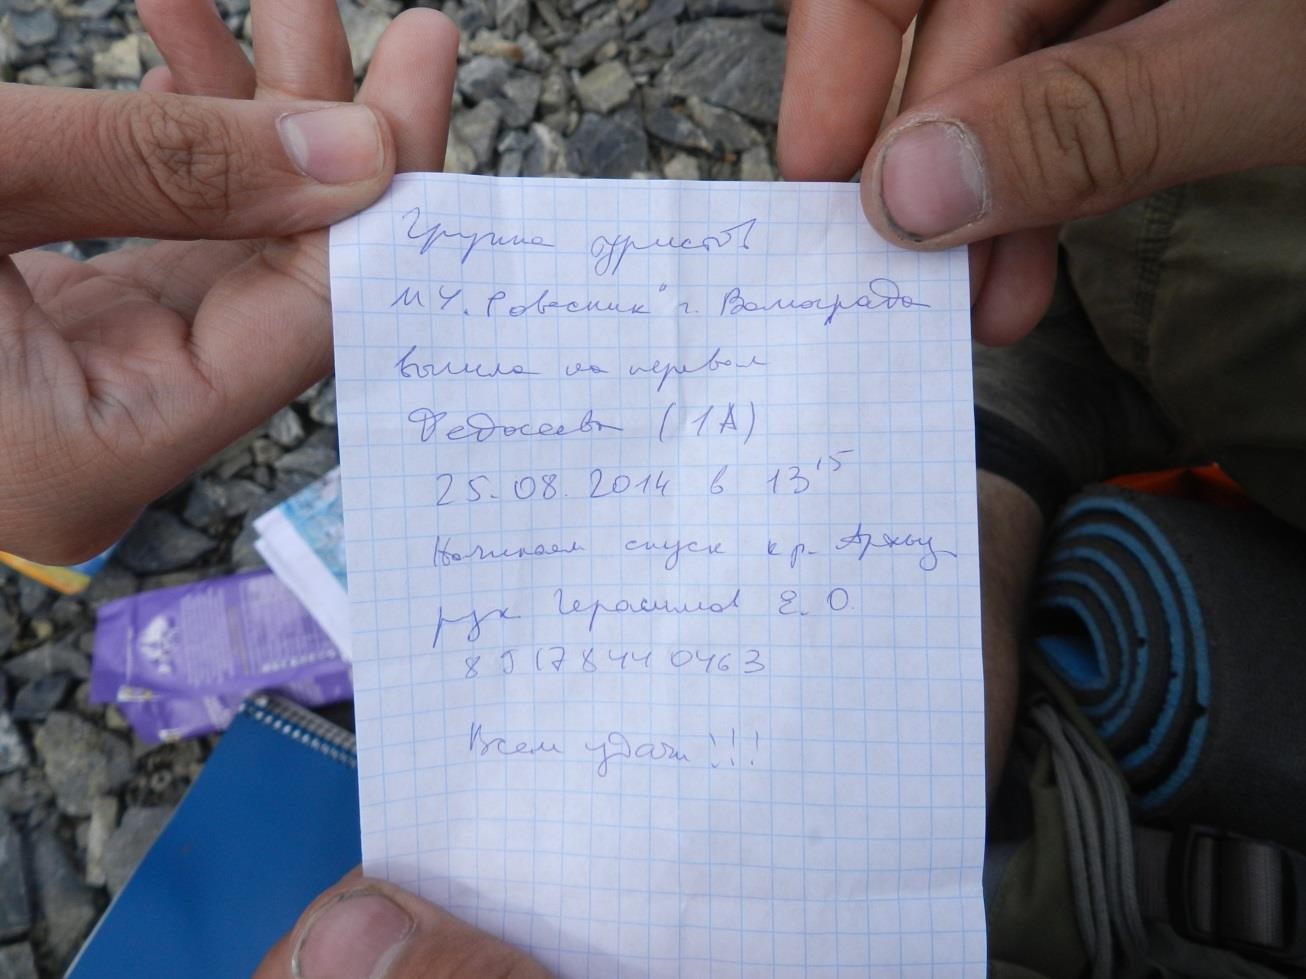 Группа туристов
МУ "Ровесник" г. Волгограда
вышла на перевал
Федосеева (1А)
25.08.2014 в 13¹⁵
Начинаем спуск к р. Архыз
рук Герасимов Е. О.
89178440463
Всем удачи!!!